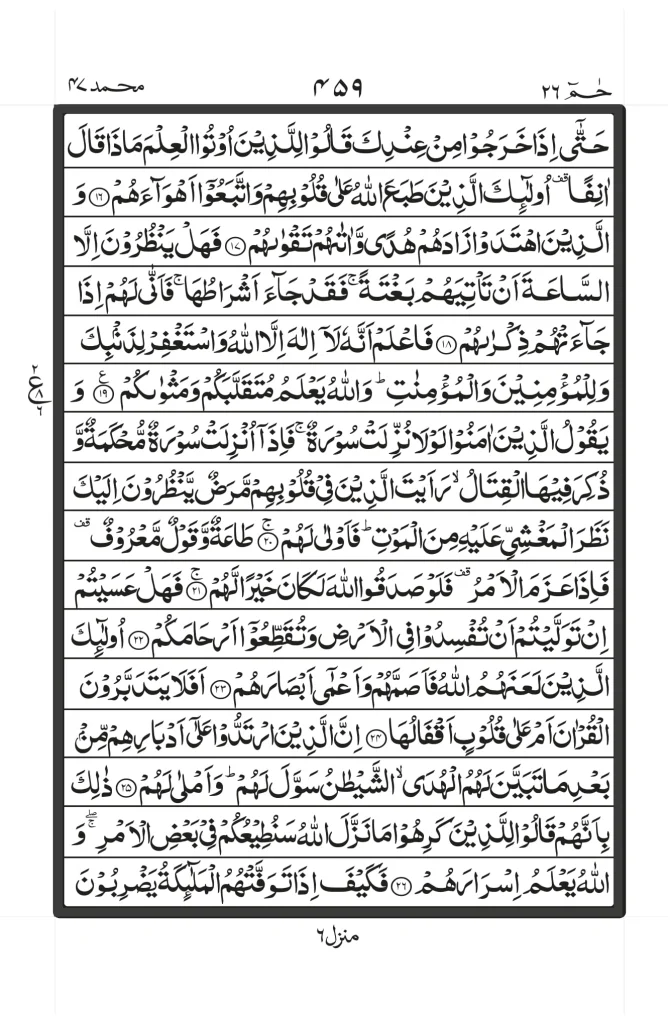 حٰمٓ ٢٦ ۴۵۹ محمد ۴۷
حَتّٰۤى اِذَا خَرَجُوْا مِنْ عِنْدِكَ قَالُوْا لِلَّذِيْنَ اُوْتُوا الْعِلْمَ مَاذَا قَالَ
اٰنِفًا ۫ اُولٰٓئِكَ الَّذِيْنَ طَبَعَ اللّٰهُ عَلٰى قُلُوْبِهِمْ وَاتَّبَعُوْۤا اَهْوَآءَهُمْ ۝۱۶ وَ
الَّذِيْنَ اهْتَدَوْا زَادَهُمْ هُدًى وَّاٰتٰىهُمْ تَقْوٰىهُمْ ۝۱۷ فَهَلْ يَنْظُرُوْنَ اِلَّا
السَّاعَةَ اَنْ تَاْتِيَهُمْ بَغْتَةً ۚ فَقَدْ جَآءَ اَشْرَاطُهَا ۚ فَاَنّٰى لَهُمْ اِذَا
جَآءَتْهُمْ ذِكْرٰىهُمْ ۝۱۸ فَاعْلَمْ اَنَّهٗ لَاۤ اِلٰهَ اِلَّا اللّٰهُ وَاسْتَغْفِرْ لِذَنْۢبِكَ
وَلِلْمُؤْمِنِيْنَ وَالْمُؤْمِنٰتِ ؕ وَاللّٰهُ يَعْلَمُ مُتَقَلَّبَكُمْ وَمَثْوٰىكُمْ ۝۱۹ ع وَ
۲ ع ۸ ۶
يَقُوْلُ الَّذِيْنَ اٰمَنُوْا لَوْلَا نُزِّلَتْ سُوْرَةٌ ۚ فَاِذَاۤ اُنْزِلَتْ سُوْرَةٌ مُّحْكَمَةٌ وَّ
ذُكِرَ فِيْهَا الْقِتَالُ ۙ رَاَيْتَ الَّذِيْنَ فِيْ قُلُوْبِهِمْ مَّرَضٌ يَّنْظُرُوْنَ اِلَيْكَ
نَظَرَ الْمَغْشِيِّ عَلَيْهِ مِنَ الْمَوْتِ ؕ فَاَوْلٰى لَهُمْ ۝۲۰ ۚ طَاعَةٌ وَّقَوْلٌ مَّعْرُوْفٌ ۫
فَاِذَا عَزَمَ الْاَمْرُ ۫ فَلَوْ صَدَقُوا اللّٰهَ لَكَانَ خَيْرًا لَّهُمْ ۝۲۱ ۚ فَهَلْ عَسَيْتُمْ
اِنْ تَوَلَّيْتُمْ اَنْ تُفْسِدُوْا فِي الْاَرْضِ وَتُقَطِّعُوْۤا اَرْحَامَكُمْ ۝۲۲ اُولٰٓئِكَ
الَّذِيْنَ لَعَنَهُمُ اللّٰهُ فَاَصَمَّهُمْ وَاَعْمٰۤى اَبْصَارَهُمْ ۝۲۳ اَفَلَا يَتَدَبَّرُوْنَ
الْقُرْاٰنَ اَمْ عَلٰى قُلُوْبٍ اَقْفَالُهَا ۝۲۴ اِنَّ الَّذِيْنَ ارْتَدُّوْا عَلٰۤى اَدْبَارِهِمْ مِّنْۢ
بَعْدِ مَا تَبَيَّنَ لَهُمُ الْهُدَى ۙ الشَّيْطٰنُ سَوَّلَ لَهُمْ ؕ وَاَمْلٰى لَهُمْ ۝۲۵ ذٰلِكَ
بِاَنَّهُمْ قَالُوْا لِلَّذِيْنَ كَرِهُوْا مَا نَزَّلَ اللّٰهُ سَنُطِيْعُكُمْ فِيْ بَعْضِ الْاَمْرِ ۖۚ وَ
اللّٰهُ يَعْلَمُ اِسْرَارَهُمْ ۝۲۶ فَكَيْفَ اِذَا تَوَفَّتْهُمُ الْمَلٰٓئِكَةُ يَضْرِبُوْنَ
منزل ۶